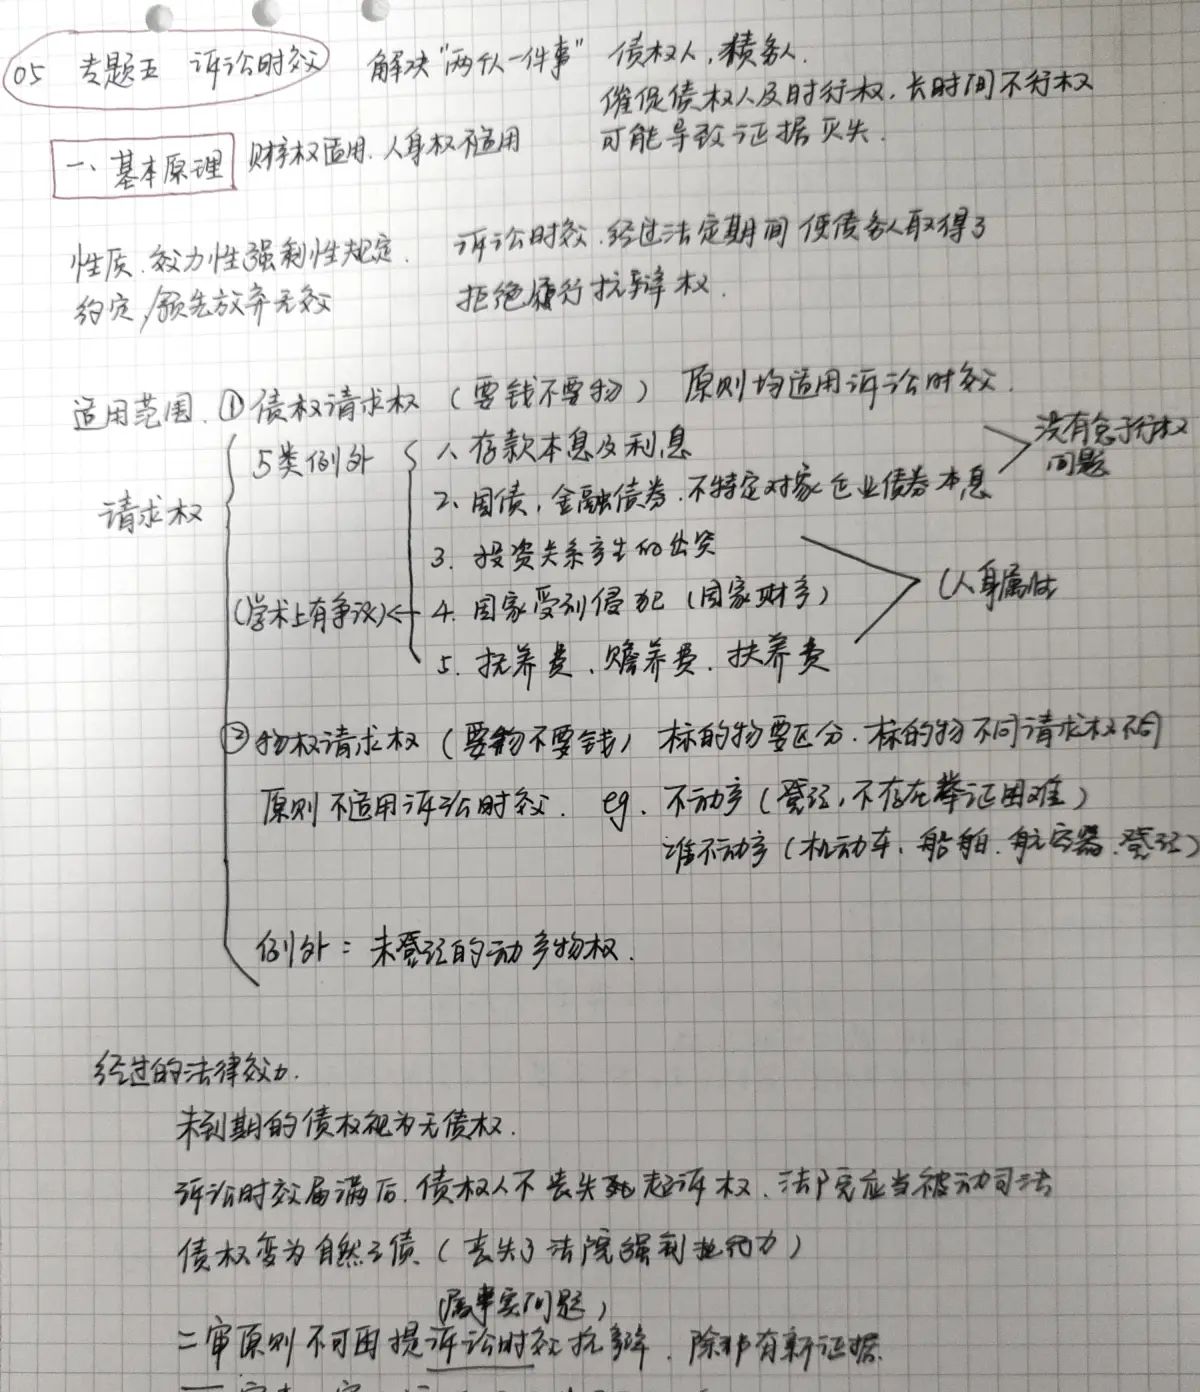 05 专题五 诉讼时效 解决"两个人一件事" 债权人,债务人.
催促债权人及时行权,长时间不行权
可能导致证据灭失.
一、基本原理 财产权适用.人身权不适用
性质.效力性强制性规定. 诉讼时效.经过法定期间 使债务人取得了
约定/预先放弃无效 拒绝履行抗辩权.
适用范围.①债权请求权(要钱不要物) 原则均适用诉讼时效.
请求权
5类例外
1、存款本息及利息
2、国债,金融债券.不特定对象企业债券本息
没有怠于行权
问题
3.投资关系产生的出资
(学术上有争议)←4.国家受到侵犯(国家财产)
(人身属性
5.抚养费、赡养费、扶养费
②物权请求权(要物不要钱) 标的物要区分.标的物不同请求权不同
原则不适用诉讼时效. eg.不动产(登记,不存在举证困难)
准不动产(机动车、船舶、航空器.登记)
例外:未登记的动产物权.
经过的法律效力.
未到期的债权视为无债权.
诉讼时效届满后.债权人不丧失起诉权.法院应当被动司法
债权变为自然之债(丧失了法院强制执行力)
(属事实问题)
二审原则不可再提诉讼时效抗辩.除非有新证据